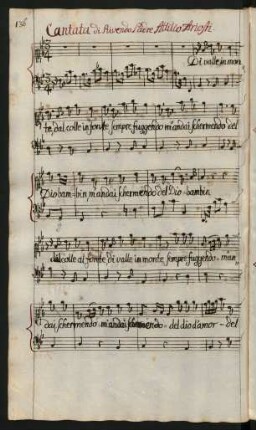 136
Cantata di Avvenda Padre Attilio Ariosti
Di valle in mon
te, dal colle in fonte sempre fuggendo m'andai schermendo del
Dio bam - bin, m'andai schermendo del Dio - bambin
dal colle al fonte di valle in monte sempre fuggendo - m'an
dai schermendo m'andai schermendo - del dio d'amor - del